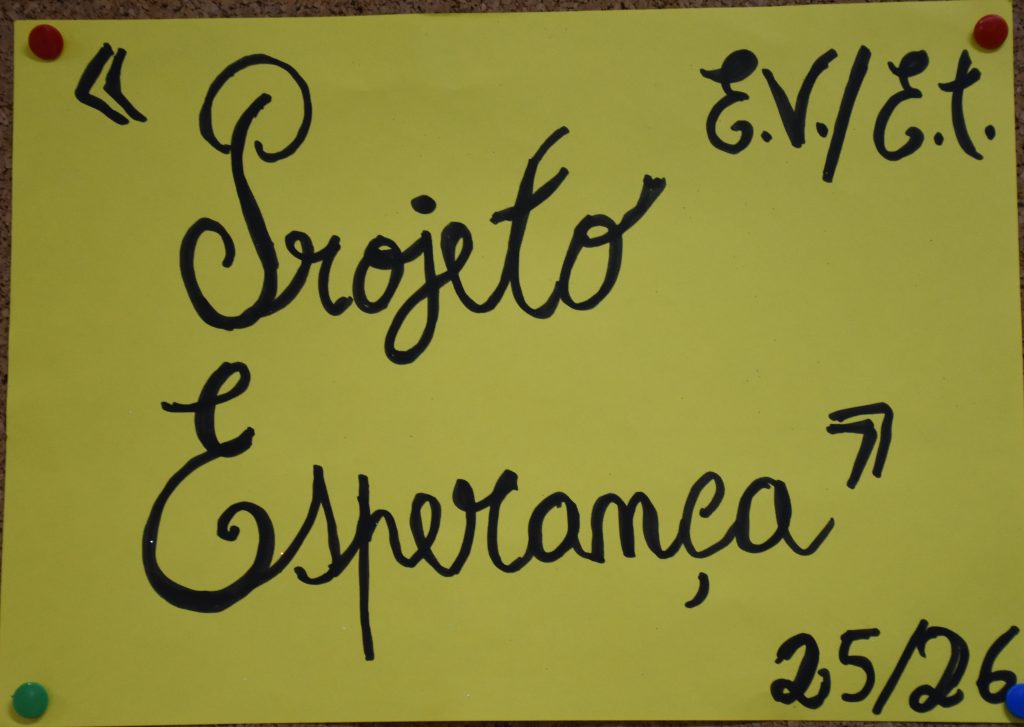 E.V./E.t.
«Projeto
Esperança»
25/26